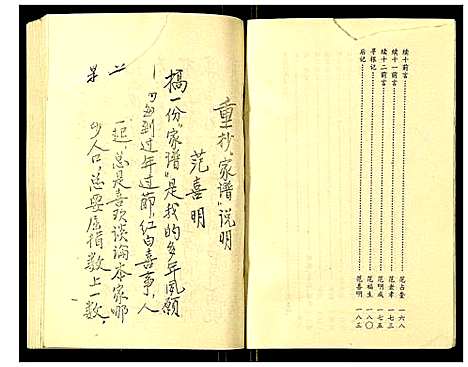 续十前言………范占奎 一六八
续十一前言………范老孝 一七三
续十二前言………范明成 一七五
寻根记………范福生 一八〇
后记………范喜明 一八三
重抄“家谱”说明
范喜明
搞一份“家谱”是我的多年夙愿
每到过年过節,红白喜事,人
一起,总是喜欢谈论本家哪
少人口,总要屈指数上一数,